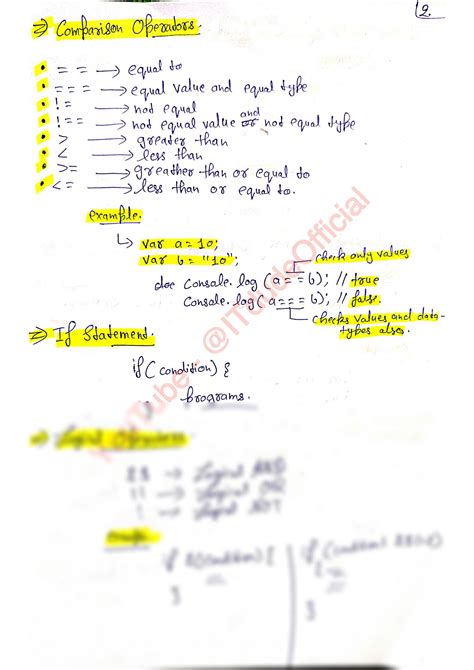 2.
⇒ Comparison Operators.
• = = → equal to
• = = = → equal value and equal type
• != → not equal
• != = → not equal value and or not equal type
• > → greater than
• < → less than
• >= → greather than or equal to
• <= → less than or equal to.
example.
↳ var a = 10;
var b = "10";
check only values
doc Console.log (a = = b); // true
Console.log (a = = = b); // false.
checks values and data-
types also.
⇒ If Statement.
if (condition) {
programs.
YouTube - @ITCodsOfficial
⇒ Logical Operators
&& → Logical AND
|| → Logical OR
! → Logical NOT